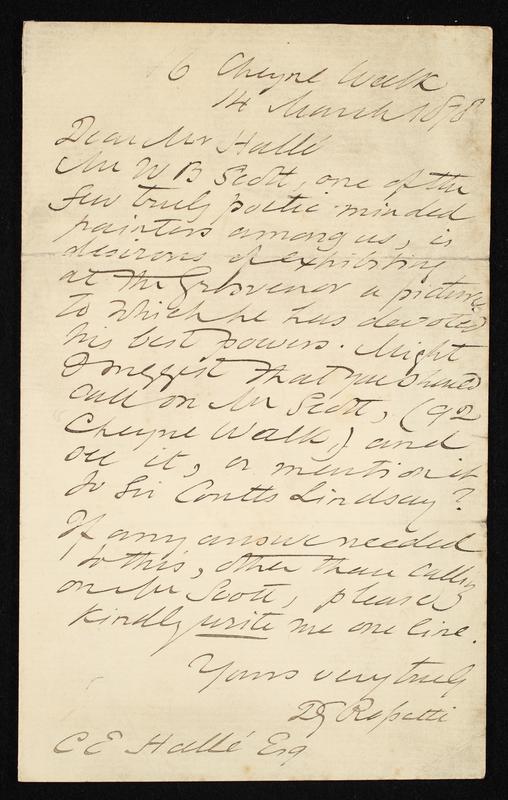 16 Cheyne Walk
14 March 1878
Dear Mr Hallé
Mr W B Scott, one of the
few truly poetic-minded
painters among us, is
desirous of exhibiting
at the Grosvenor a picture
to which he has devoted
his best powers. Might
I suggest that you should
call on Mr Scott, (92
Cheyne Walk,) and
see it, or mention it
to Sir Coutts Lindsay?
If any answer needed
to this, other than calling
on Mr Scott, please
kindly write me one line.
Yours very truly
DG Rossetti
C E Hallé Esq